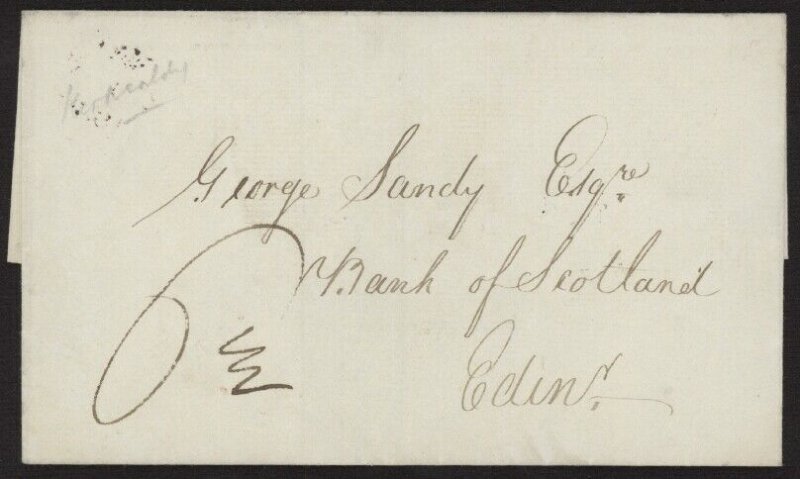 Kirkcaldy
George Sandy Esqre.
Bank of Scotland
6
Edinr.